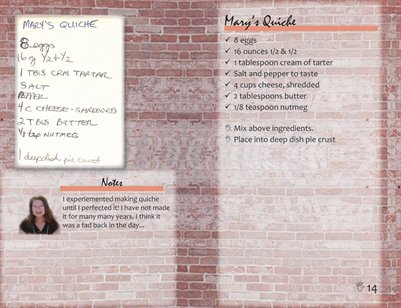 MARY'S QUICHE
8 eggs
16 oz 1/2 & 1/2
1 TBLS CRM TARTAR
SALT
PEPPER
4 C CHEESE-SHREDDED
2 TBLS BUTTER
1/8 tsp NUTMEG
1 deepdish pie crust
Notes
I experiemented making quiche
until I perfected it! I have not made
it for many many years. I think it
was a fad back in the day...
Mary's Quiche
✓ 8 eggs
✓ 16 ounces 1/2 & 1/2
✓ 1 tablespoon cream of tarter
✓ Salt and pepper to taste
✓ 4 cups cheese, shredded
✓ 2 tablespoons butter
✓ 1/8 teaspoon nutmeg
Mix above ingredients.
Place into deep dish pie crust
14